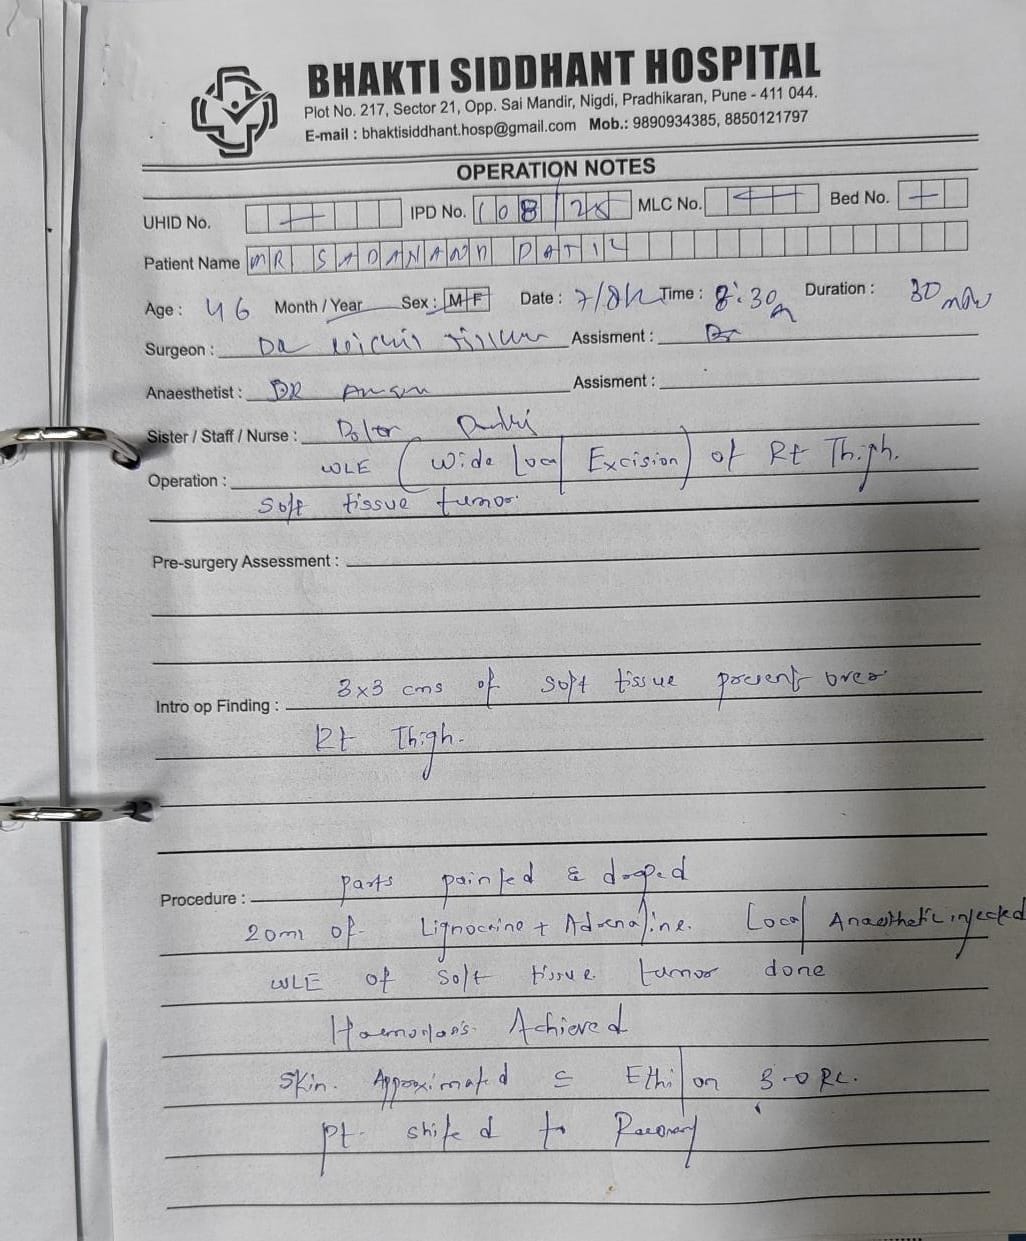 BHAKTI SIDDHANT HOSPITAL
Plot No. 217, Sector 21, Opp. Sai Mandir, Nigdi, Pradhikaran, Pune - 411 044.
E-mail : bhaktisiddhant.hosp@gmail.com Mob.: 9890934385, 8850121797
OPERATION NOTES
UHID No. IPD No. 108/ MLC No. Bed No.
Patient Name MR SADANAND PATIL
Age : 46 Month / Year Sex : M F Date : Time : 8:30 Duration : 30
Surgeon : Assisment :
Anaesthetist : DR Assisment :
Sister / Staff / Nurse :
Operation : WLE (Wide Local Excision) of Rt Thigh.
Soft tissue tumor
Pre-surgery Assessment :
Intro op Finding : 3x3 cms of soft tissue present over
Rt Thigh.
Procedure : parts painted & draped
20ml of Lignocaine + Adrenaline. Local Anaesthetic injected
WLE of soft tissue tumor done
Haemostasis Achieved
Skin Approximated c Ethilon 3-0 RC.
pt. shifted to Recovery